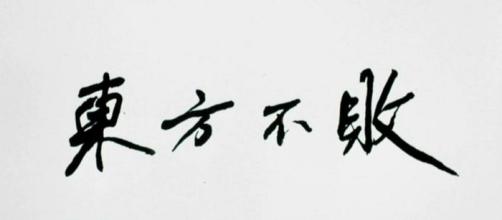 東方不敗